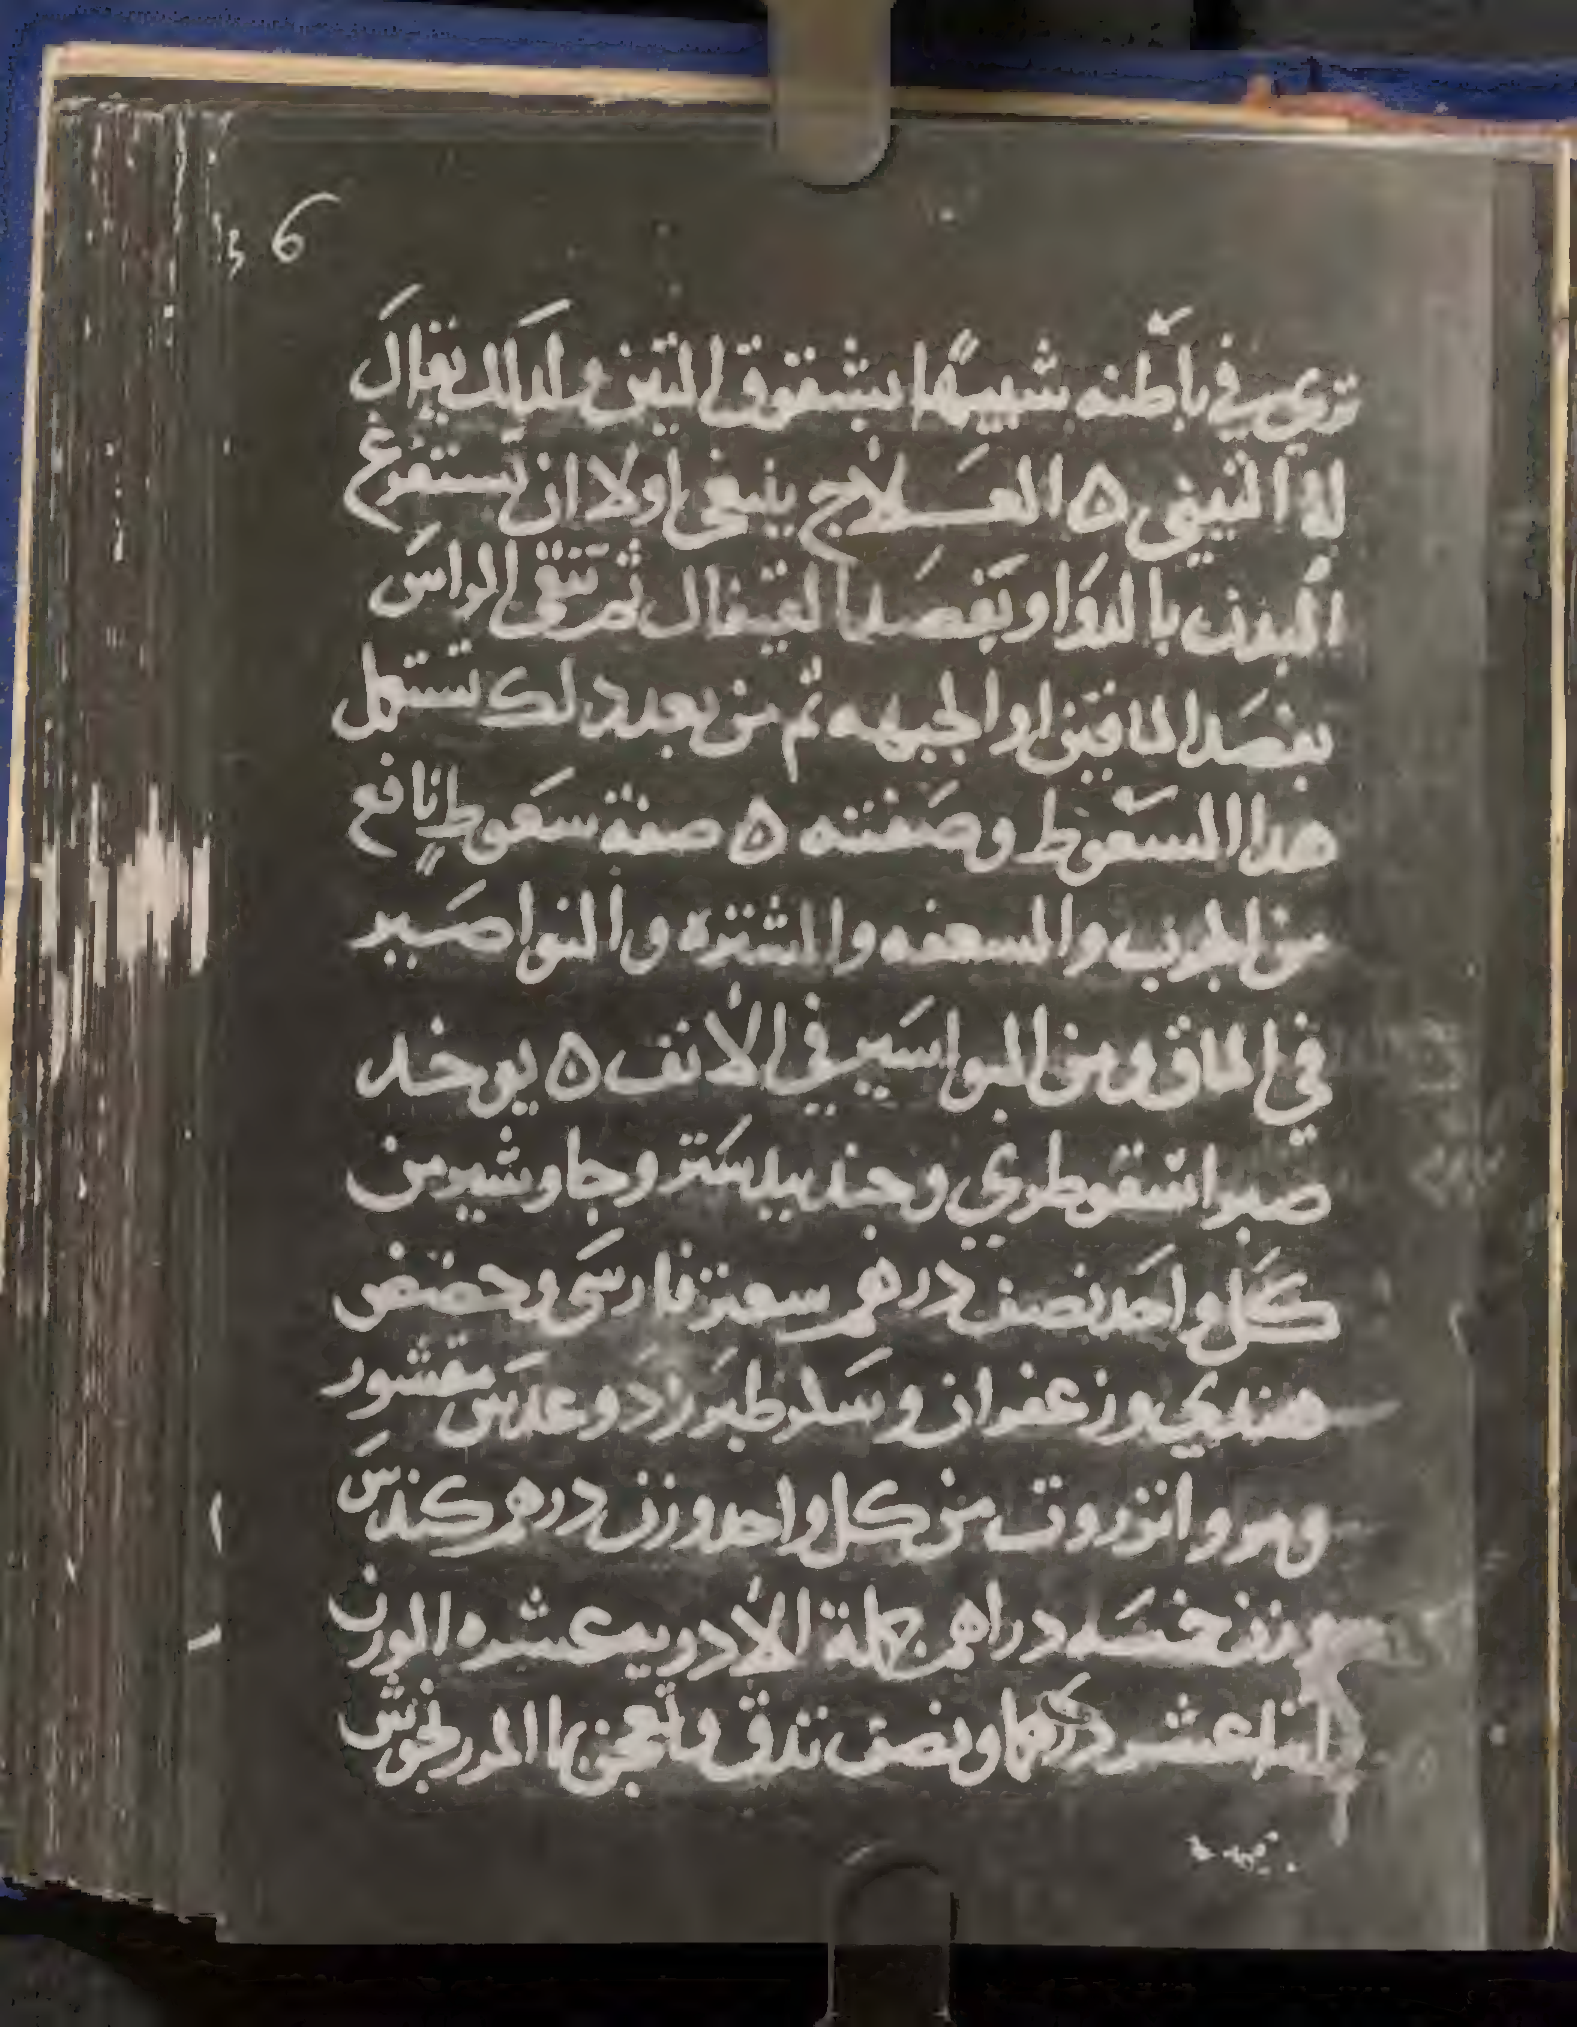 6
تري في باطنه شبيهًا بشقوق التين ولدلك يقال
له التيني ه العلاج ينبغي اولا ان تستفرغ
البدن بالدوا وتفصد القيفال ثم تنقي الراس
بفصد الماقين او الجبهه ثم من بعد دلك تستعمل
هدا السعوط وصفته ه صفة سعوط نافع
من الجرب والسعفه والشتره والنواصير
في الماق ومن البواسير في الانف ه يوخد
صبر اسقوطري وجندبيدستر وجاوشير من
كل واحد نصف درهم سعتر فارسي وحضض
هندي وزعفران وسكر طبرزد وعدس مقشور
ومر وانزروت من كل واحد وزن درهم كندس
وزن خمسه دراهم جملة الادويه عشره الوزن
اثنا عشر درهما ونصف تدق وتعجن بما المرزنجوش